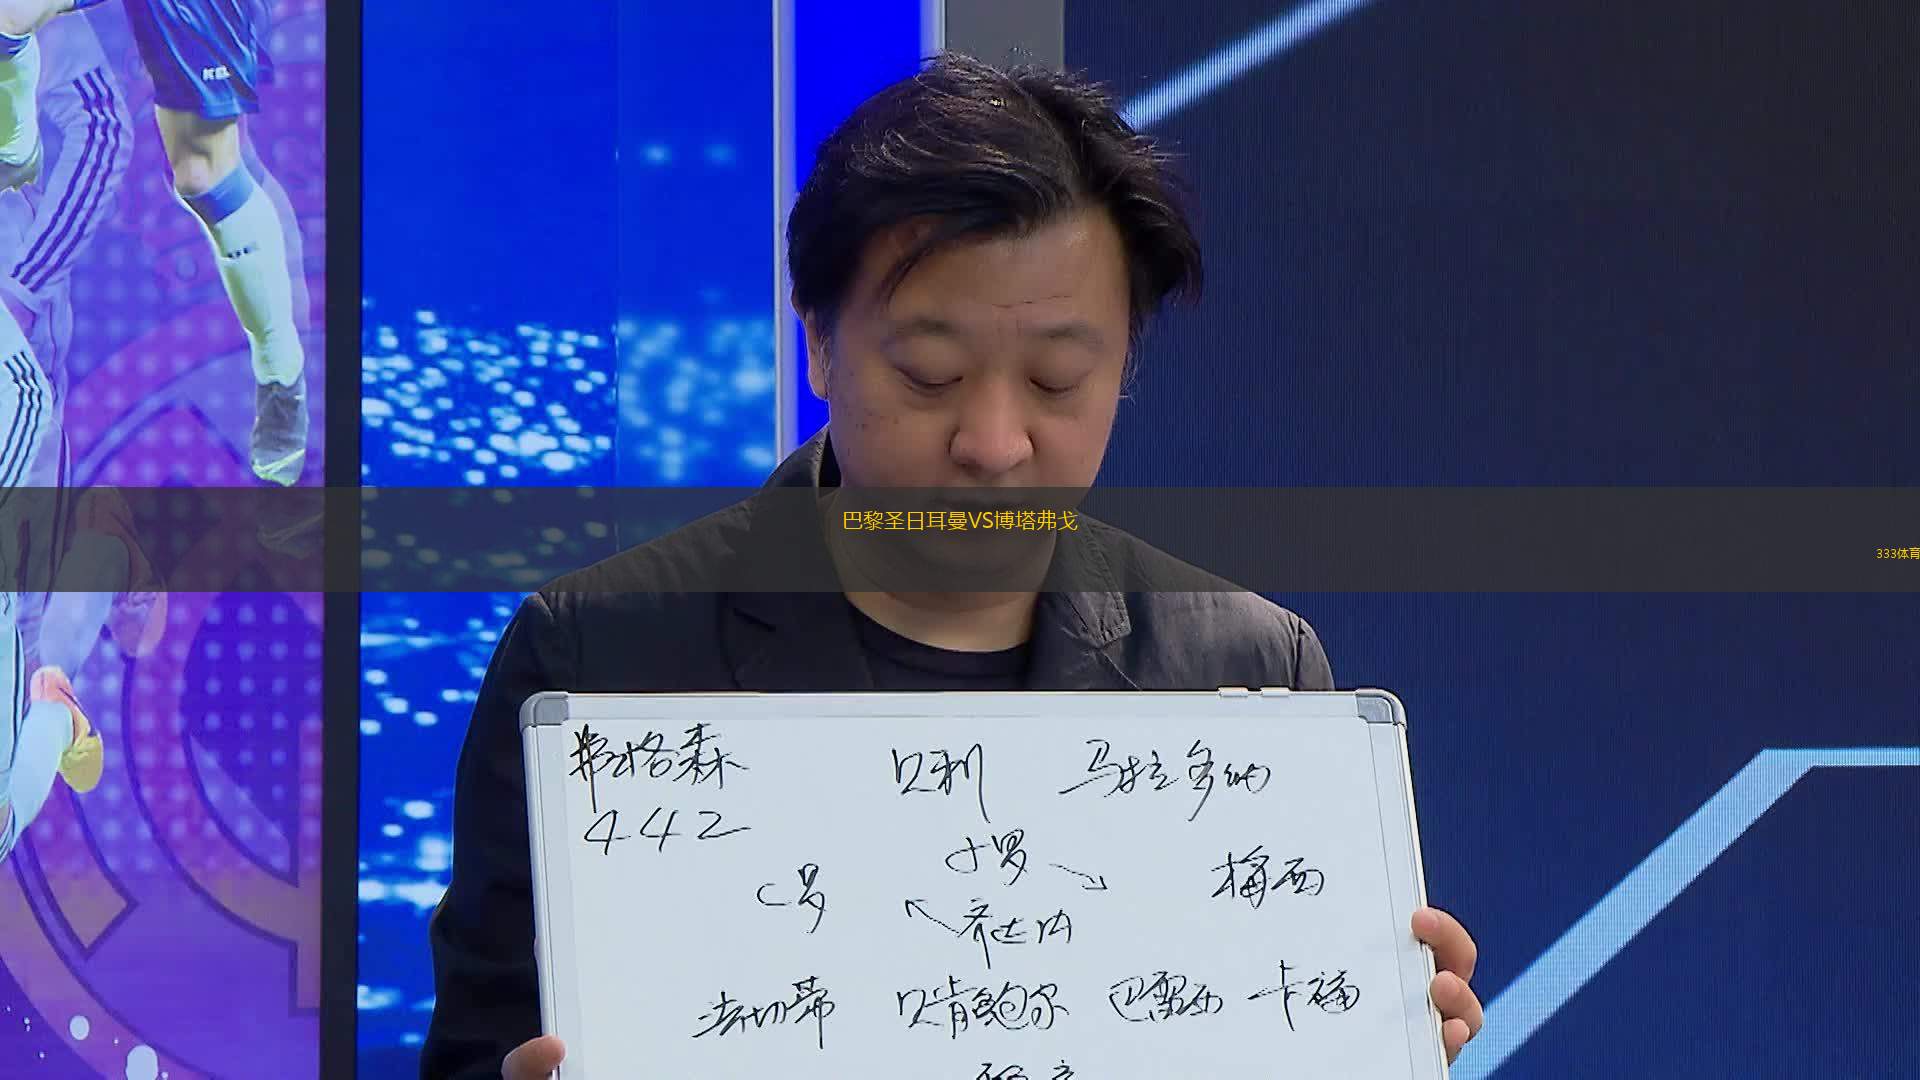 巴黎圣日耳曼VS博塔弗戈
333体育
弗格森 贝利 马拉多纳
442
小罗
C罗 梅西
齐达内
法切蒂 贝肯鲍尔 巴雷西 卡福